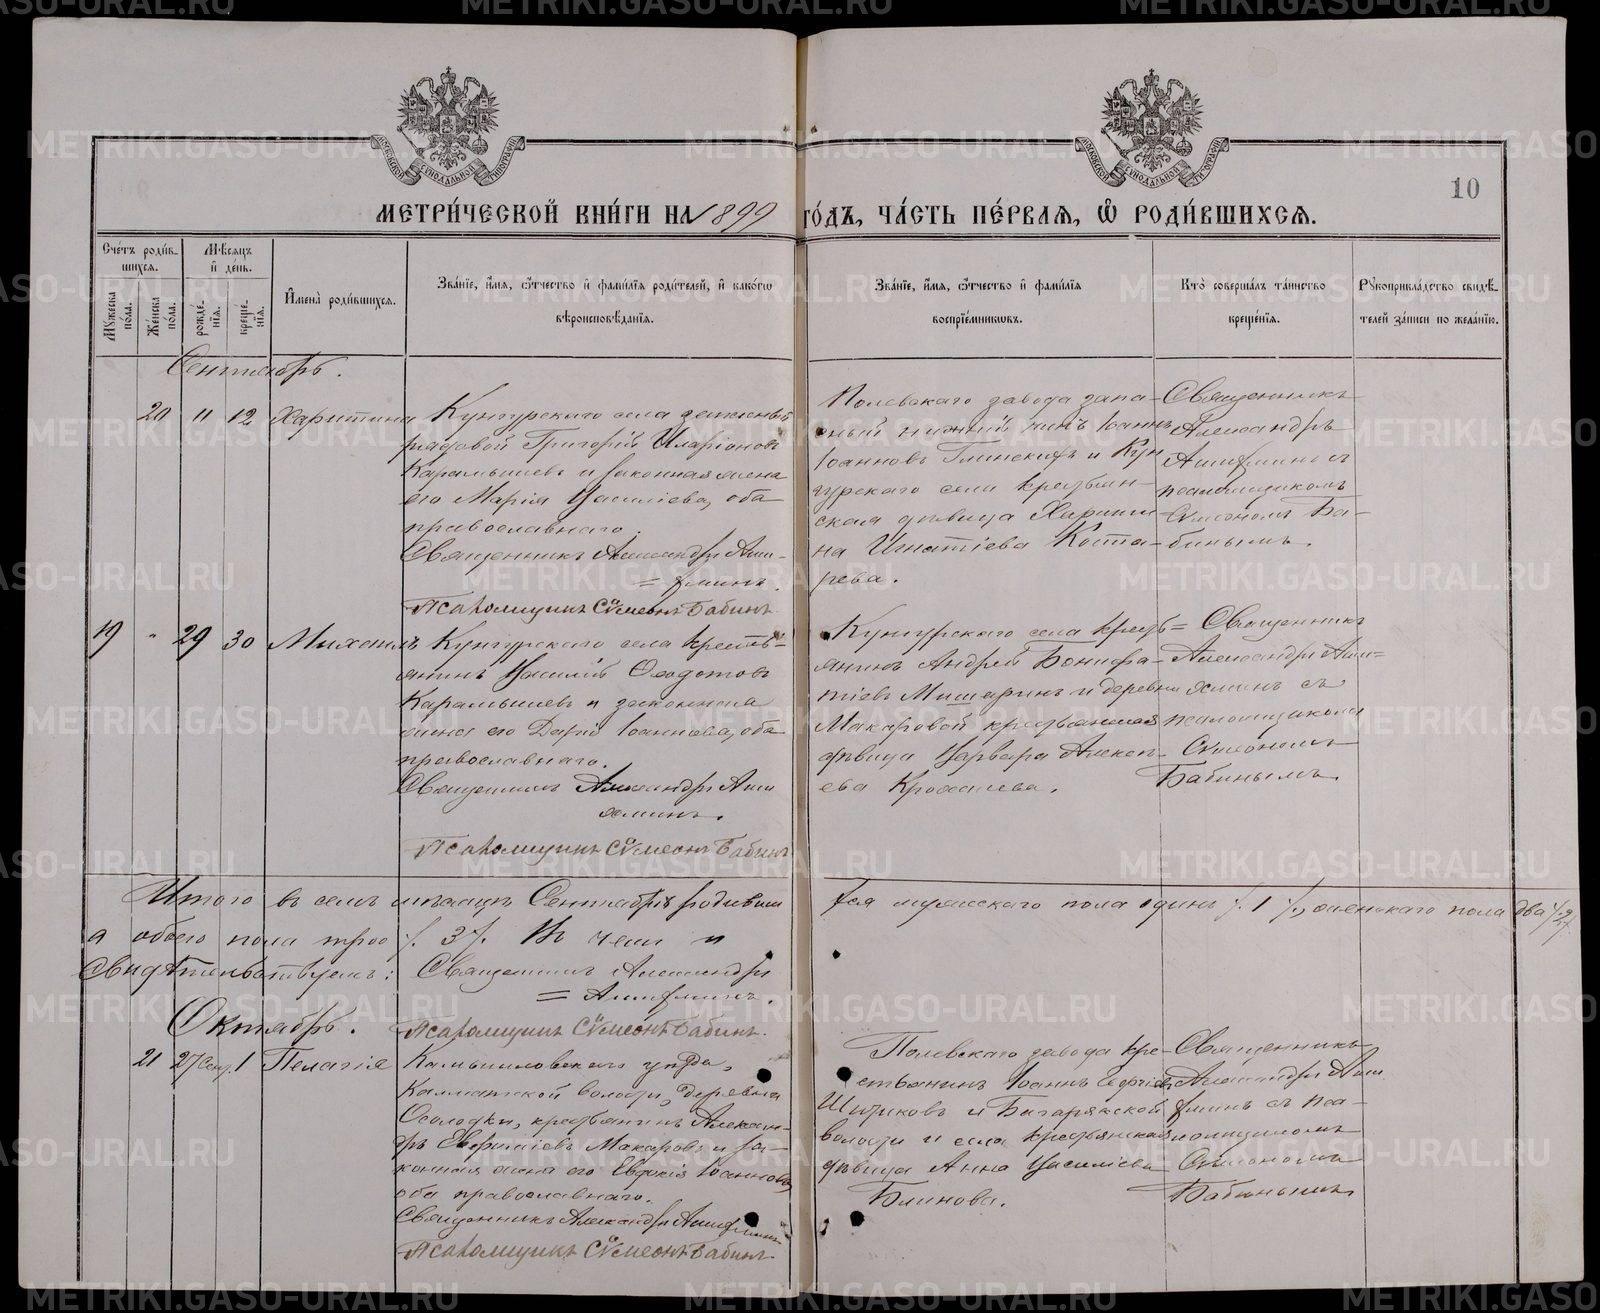 МОСКОВСКОЙ СѴНОДАЛЬНОЙ ТИПОГРАФІИ
МОСКОВСКОЙ СѴНОДАЛЬНОЙ ТИПОГРАФІИ
10
МЕТРИ́ЧЕСКОЙ КНИ́ГИ НА 1899 ГО́ДЪ, ЧА́СТЬ ПЕ́РВАѦ, Ѽ РОДИ́ВШИХСѦ.
Сче́тъ роди́вшихся.
Мѣ́сяцъ и҆ де́нь.
Му́жеска по́ла.
Же́нска по́ла.
рожде́нїя.
креще́нїя.
И҆мена̀ роди́вшихся.
Зва́нїе, и҆́мя, ѻ҆́тчество и҆ фами́лїя роди́телей, и҆ како́гѡ вѣроисповѣ́данїя.
Зва́нїе, и҆́мя, ѻ҆́тчество и҆ фами́лїя воспрїе́мникѡвъ.
Кто̀ соверша́лъ та́инство креще́нїя.
Рꙋкоприкла́дство свидѣ́телей за́писи по жела́нїю.
Сентябрь.
20 11 12 Харитина
Кунгурскаго села
рядовой Григорій Иларіоновъ
Карамышевъ и законная жена
его Марія Василіева, оба
православнаго.
Священникъ Александръ
Псаломщикъ Сѵмеонъ Бабинъ
Полевскаго завода запа-
сный нижній чинъ Іоаннъ
Іоанновъ Глинскихъ и Кун
гурскаго села крестьян-
ская дѣвица Харити-
на Игнатіева Коста-
рева.
Священникъ
Александръ
съ
псаломщикомъ
Сѵмеономъ Ба-
бинымъ.
19 " 29 30 Михаилъ
Кунгурскаго села кресть-
янинъ Василій Ѳеодотовъ
Карамышевъ и законная
жена его Дарія Іоаннова, оба
православнаго.
Священникъ Александръ
Псаломщикъ Сѵмеонъ Бабинъ
Кунгурскаго села кресть=
янинъ Андрей Бонифа-
тіевъ Мишаринъ и деревни
Макаровой крестьянская
дѣвица Варвара Алексі-
ева
Священникъ
Александръ
съ
псаломщикомъ
Сѵмеономъ
Бабинымъ.
Итого въ семъ мѣсяцѣ Сентябрѣ родивши
ся мужескаго пола одинъ /.1/., женскаго пола два /.2/.
а обоего пола трое /.3/. Въ чемъ и
свидѣтельствуемъ: Священникъ Александръ
Октябрь.
Псаломщикъ Сѵмеонъ Бабинъ.
21 27 Сент. 1 Пелагія
Камышловскаго уѣзда,
волости, деревни
крестьянинъ Алексан-
дръ Макаровъ и за-
конная жена его Евдокія Іоаннова,
оба православнаго.
Священникъ Александръ
Псаломщикъ Сѵмеонъ Бабинъ
Полевскаго завода кре-
стьянинъ Іоаннъ
и Багарякской
волости и села крестьянская
дѣвица Анна Василіева
Блинова.
Священникъ
Александръ
съ пса-
ломщикомъ
Сѵмеономъ
Бабинымъ.
METRIKI.GASO-URAL.RU